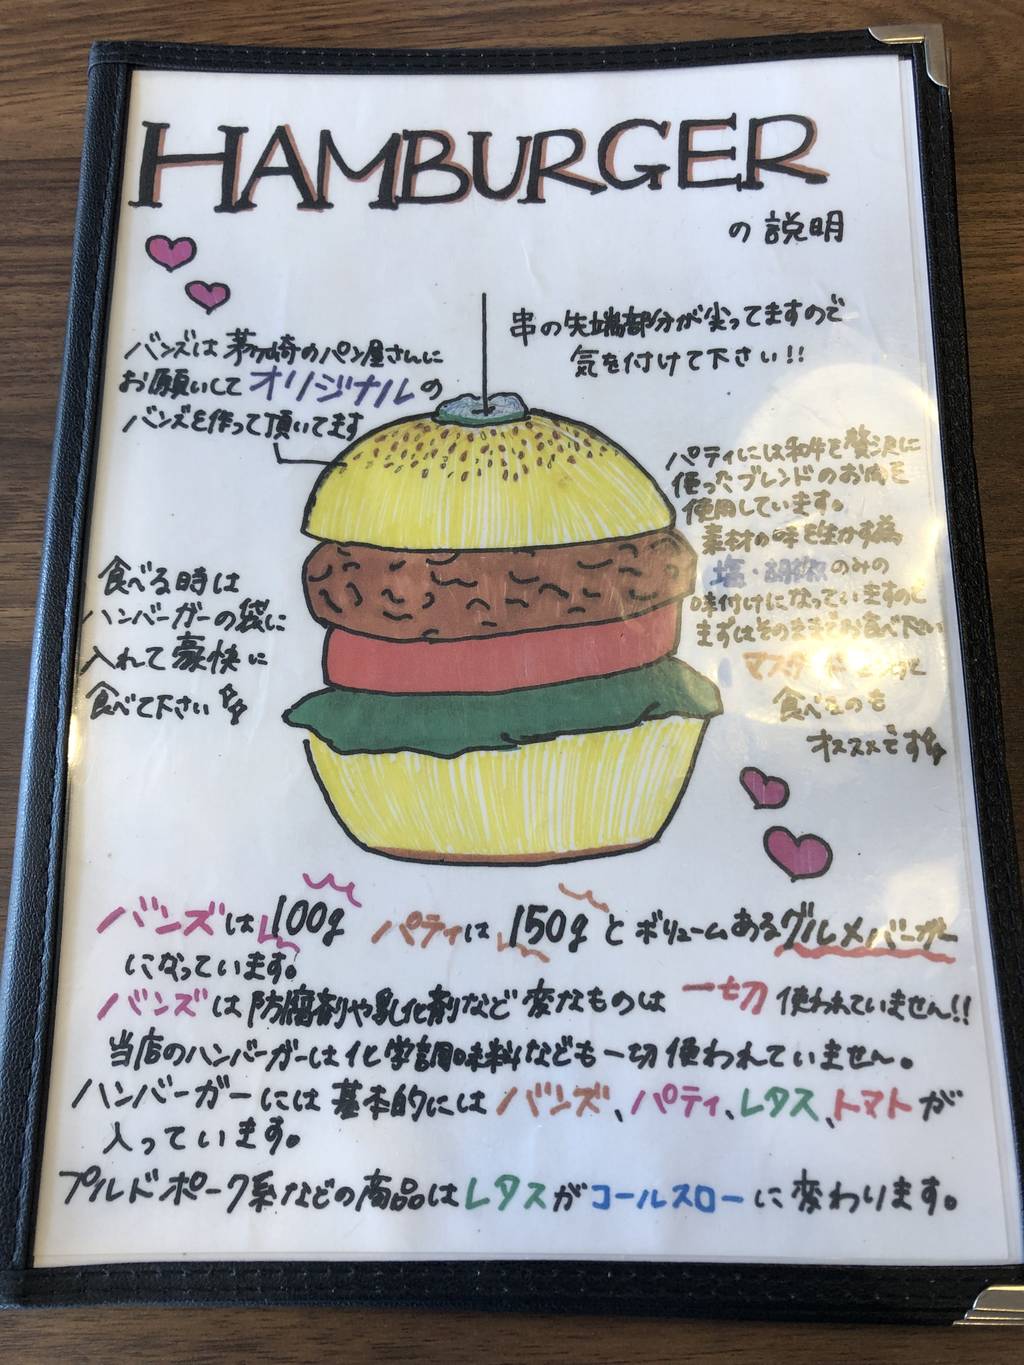 HAMBURGER
の説明
串の先端部分が尖ってますので
気を付けて下さい!!
バンズは茅ヶ崎のパン屋さんに
お願いして オリジナルの
バンズを作って頂いてます
パティには和牛を贅沢に
使ったブレンドのお肉を
使用しています。
素材の味を生かす為
塩・胡椒のみの
味付けになっていますので
まずはそのままお召べ下さい
マスタード
食べるのも
オススメです
食べる時は
ハンバーガーの袋に
入れて豪快に
食べて下さい
バンズは100g パティは150gとボリュームあるグルメバーガー
になっています。
バンズは防腐剤や乳化剤など変なものは一切使われていません!!
当店のハンバーガーは化学調味料なども一切使われていません。
ハンバーガーには基本的にはバンズ、パティ、レタス、トマトが
入っています。
プルドポーク系などの商品はレタスがコールスローに変わります。